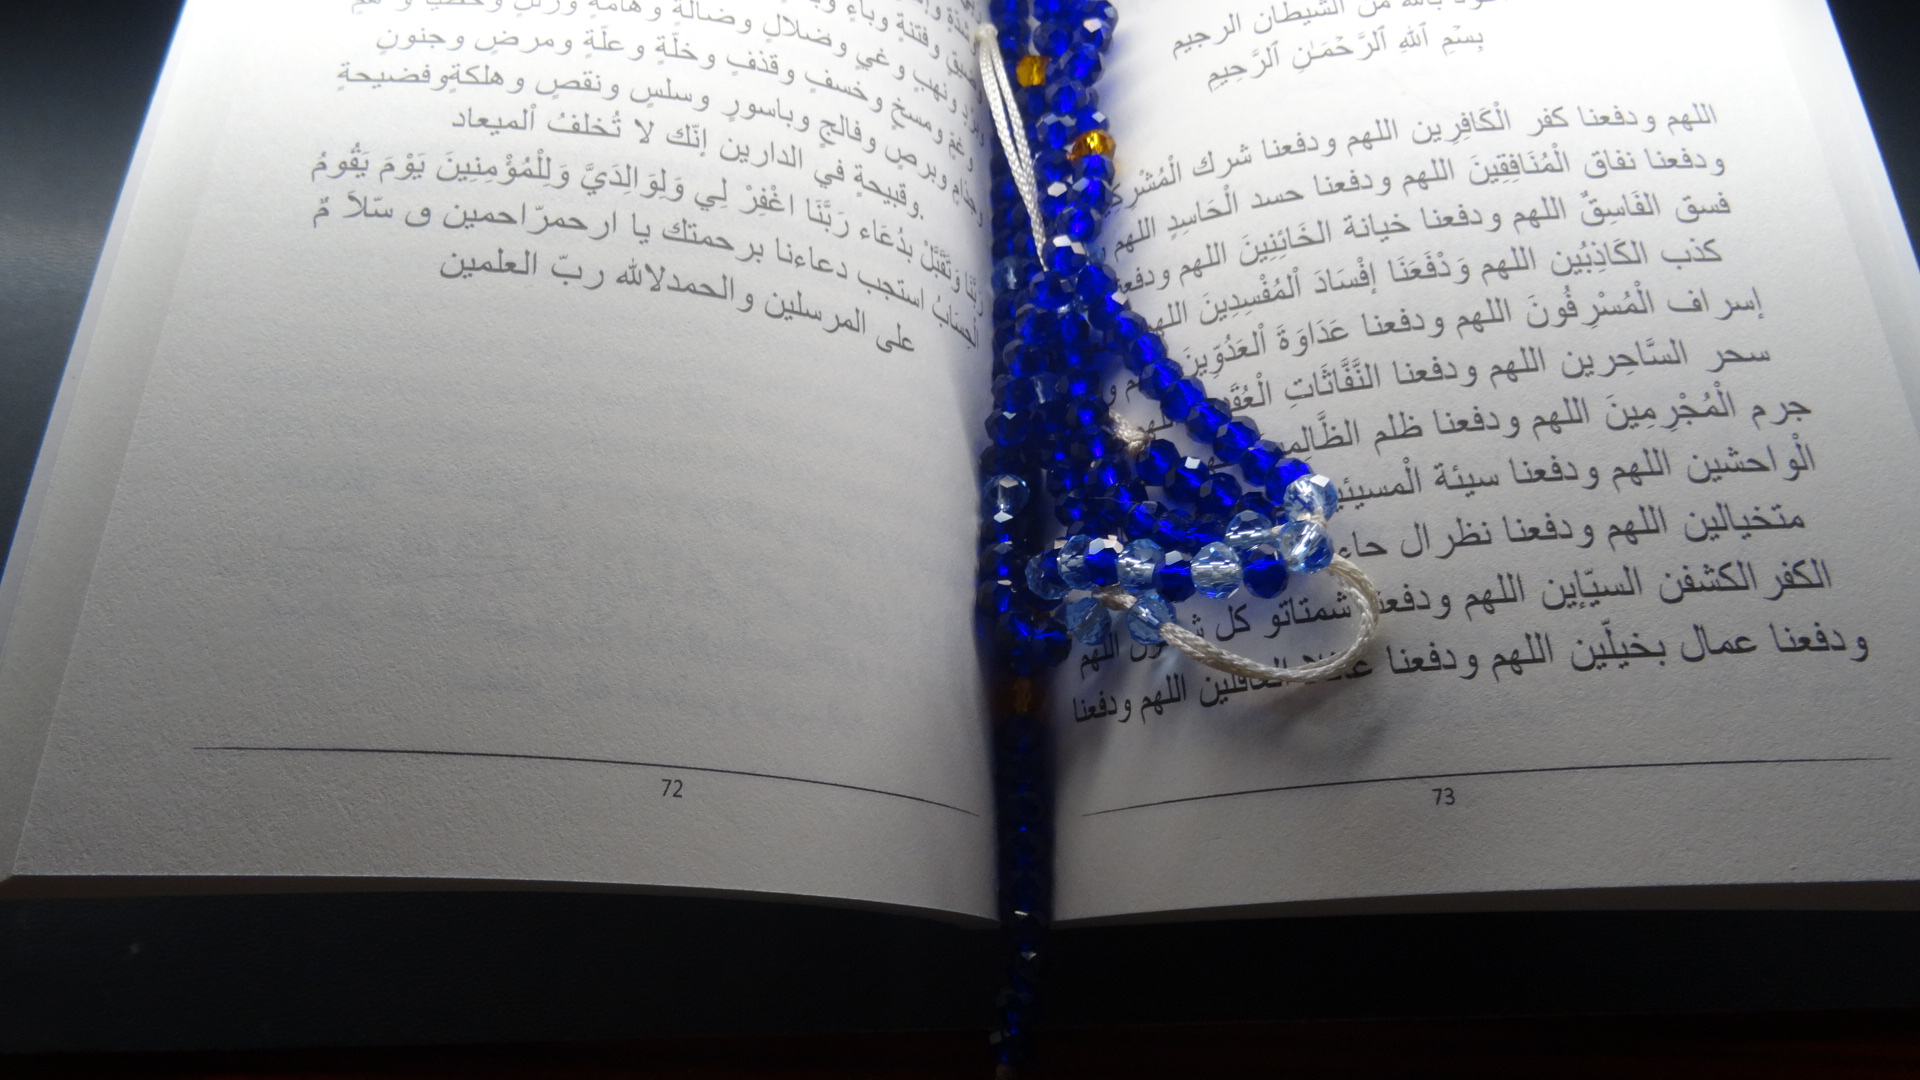 وفتنةٍ وباءٍ
ونهبٍ وغيٍ وضلالٍ وضالةٍ وهامةٍ وزللٍ
وغمٍ ومسخٍ وخسفٍ وقذفٍ وخلّةٍ وعلّةٍ ومرضٍ وجنونٍ
وجذامٍ وبرصٍ وفالجٍ وباسورٍ وسلسٍ ونقصٍ وهلكةٍوفضيحةٍ
وقبيحةٍ في الدارين إنّك لا تُخلفُ ألميعاد.
وَتَقَبَّلْ بدُعَاء رَبَّنَا اغْفِرْ لِي وَلِوَالِدَيَّ وَلِلْمُؤْمِنِينَ يَوْمَ يَقُومُ
الحِسَابُ استجب دعاءنا برحمتك يا ارحمرّاحمين و سّلاَ مٌ
على المرسلين والحمدلالله ربّ العلمين
72
بالله من الشيطان الرجيم
بِسْمِ ٱللهِ ٱلرَّحْمَـٰنِ ٱلرَّحِيمِ
اللهم ودفعنا كفر الْكَافِرِين اللهم ودفعنا شرك
ودفعنا نفاق الْمُنَافِقِينَ اللهم ودفعنا حسد الْحَاسِدِ اللهم
فسق الفَاسِقٌ اللهم ودفعنا خيانة الخَائِنِينَ اللهم
كذب الكَاذِبُين اللهم وَدْفَعَنَا إفْسَادَ الْمُفْسِدِينَ
إسراف الْمُسْرِفُونَ اللهم ودفعنا عَدَاوَةَ الْعَدُوِّينَ
سحر السَّاحِرين اللهم ودفعنا النَّفَّاثَاتِ
جرم الْمُجْرِمِينَ اللهم ودفعنا ظلم
الْواحشين اللهم ودفعنا سيئة
متخيالين اللهم ودفعنا نظرال
الكفرالكشفن السيّاٍين اللهم ودفعنا شمتاتو كل اللهم
ودفعنا عمال بخيلّين اللهم ودفعنا الغافلين اللهم ودفعنا
73